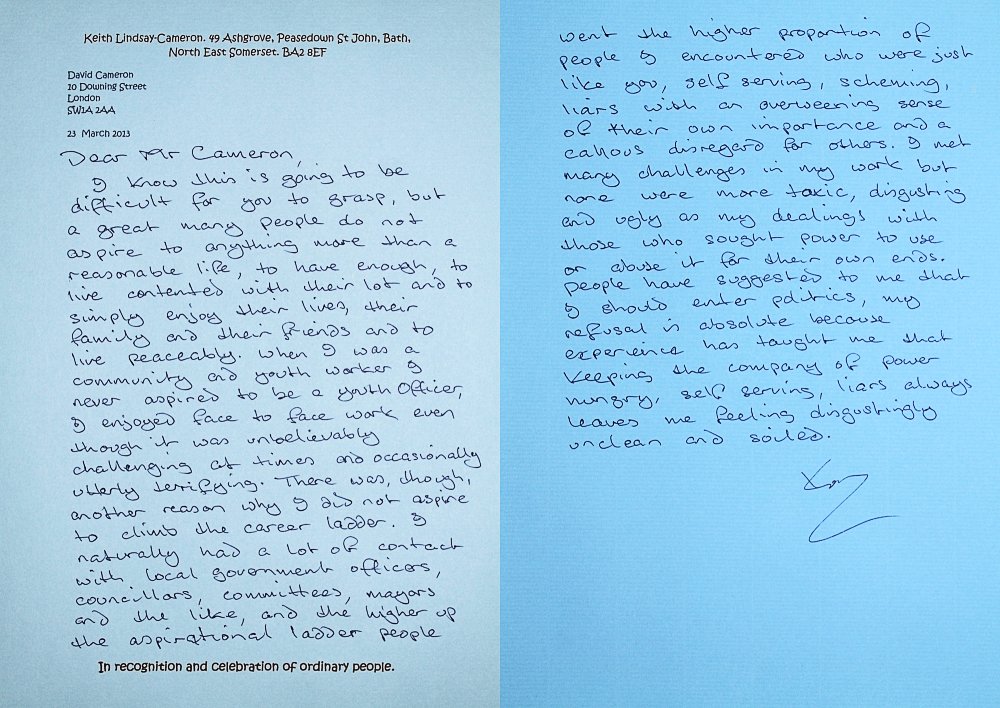 Keith Lindsay-Cameron. 49 Ashgrove, Peasedown St John, Bath,
North East Somerset. BA2 8EF
David Cameron
10 Downing Street
London
SW1A 2AA
23 March 2013
Dear Mr Cameron,
I know this is going to be
difficult for you to grasp, but
a great many people do not
aspire to anything more than a
reasonable life, to have enough, to
live contented with their lot and to
simply enjoy their lives, their
family and their friends and to
live peaceably. When I was a
community and youth worker I
never aspired to be a youth officer,
I enjoyed face to face work even
though it was unbelievably
challenging at times and occasionally
utterly terrifying. There was, though,
another reason why I did not aspire
to climb the career ladder. I
naturally had a lot of contact
with local government officers,
councillors, committees, mayors
and the like, and the higher up
the aspirational ladder people
In recognition and celebration of ordinary people.
went the higher proportion of
people I encountered who were just
like you, self serving, scheming,
liars with an overweening sense
of their own importance and a
callous disregard for others. I met
many challenges in my work but
none were more toxic, disgusting
and ugly as my dealings with
those who sought power to use
or abuse it for their own ends.
People have suggested to me that
I should enter politics, my
refusal is absolute because
experience has taught me that
keeping the company of power
hungry, self serving, liars always
leaves me feeling disgustingly
unclean and soiled.